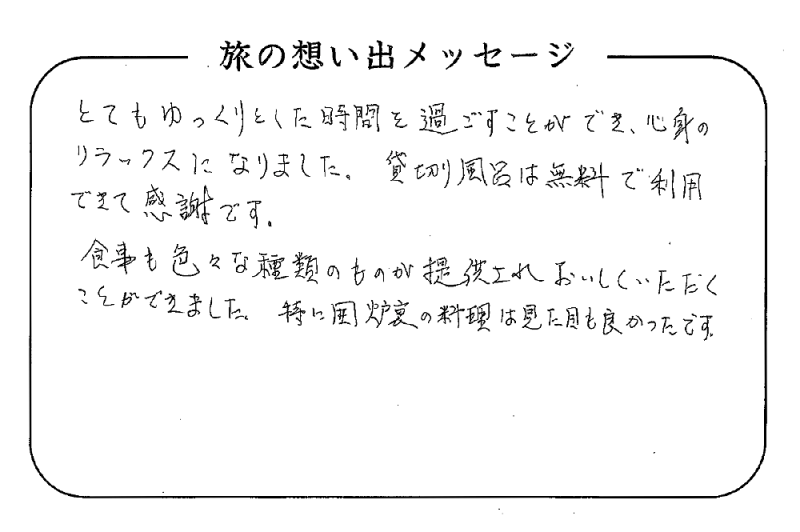 旅の想い出メッセージ
とてもゆっくりとした時間を過ごすことができ、心身の
リラックスになりました。貸切風呂は無料で利用
できて感謝です。
食事も色々な種類のものが提供されおいしくいただく
ことができました。特に囲炉裏の料理は見た目も良かったです。